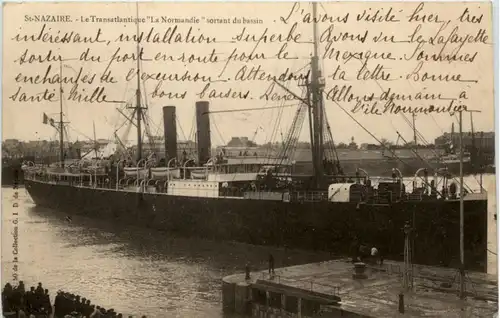 St-NAZAIRE. - Le Transatlantique "La Normandie" sortant du bassin
L'avons visité hier, très
intéressant, installation Superbe Avons vu le Lafayette
Sortir du port en route pour le Mexique. Sommes
enchantées de l'excursion. Attendons ta lettre. Bonne
Santé Mille bons baisers. Allons demain à
l'île Noirmoutier
de la Collection G. I. D.